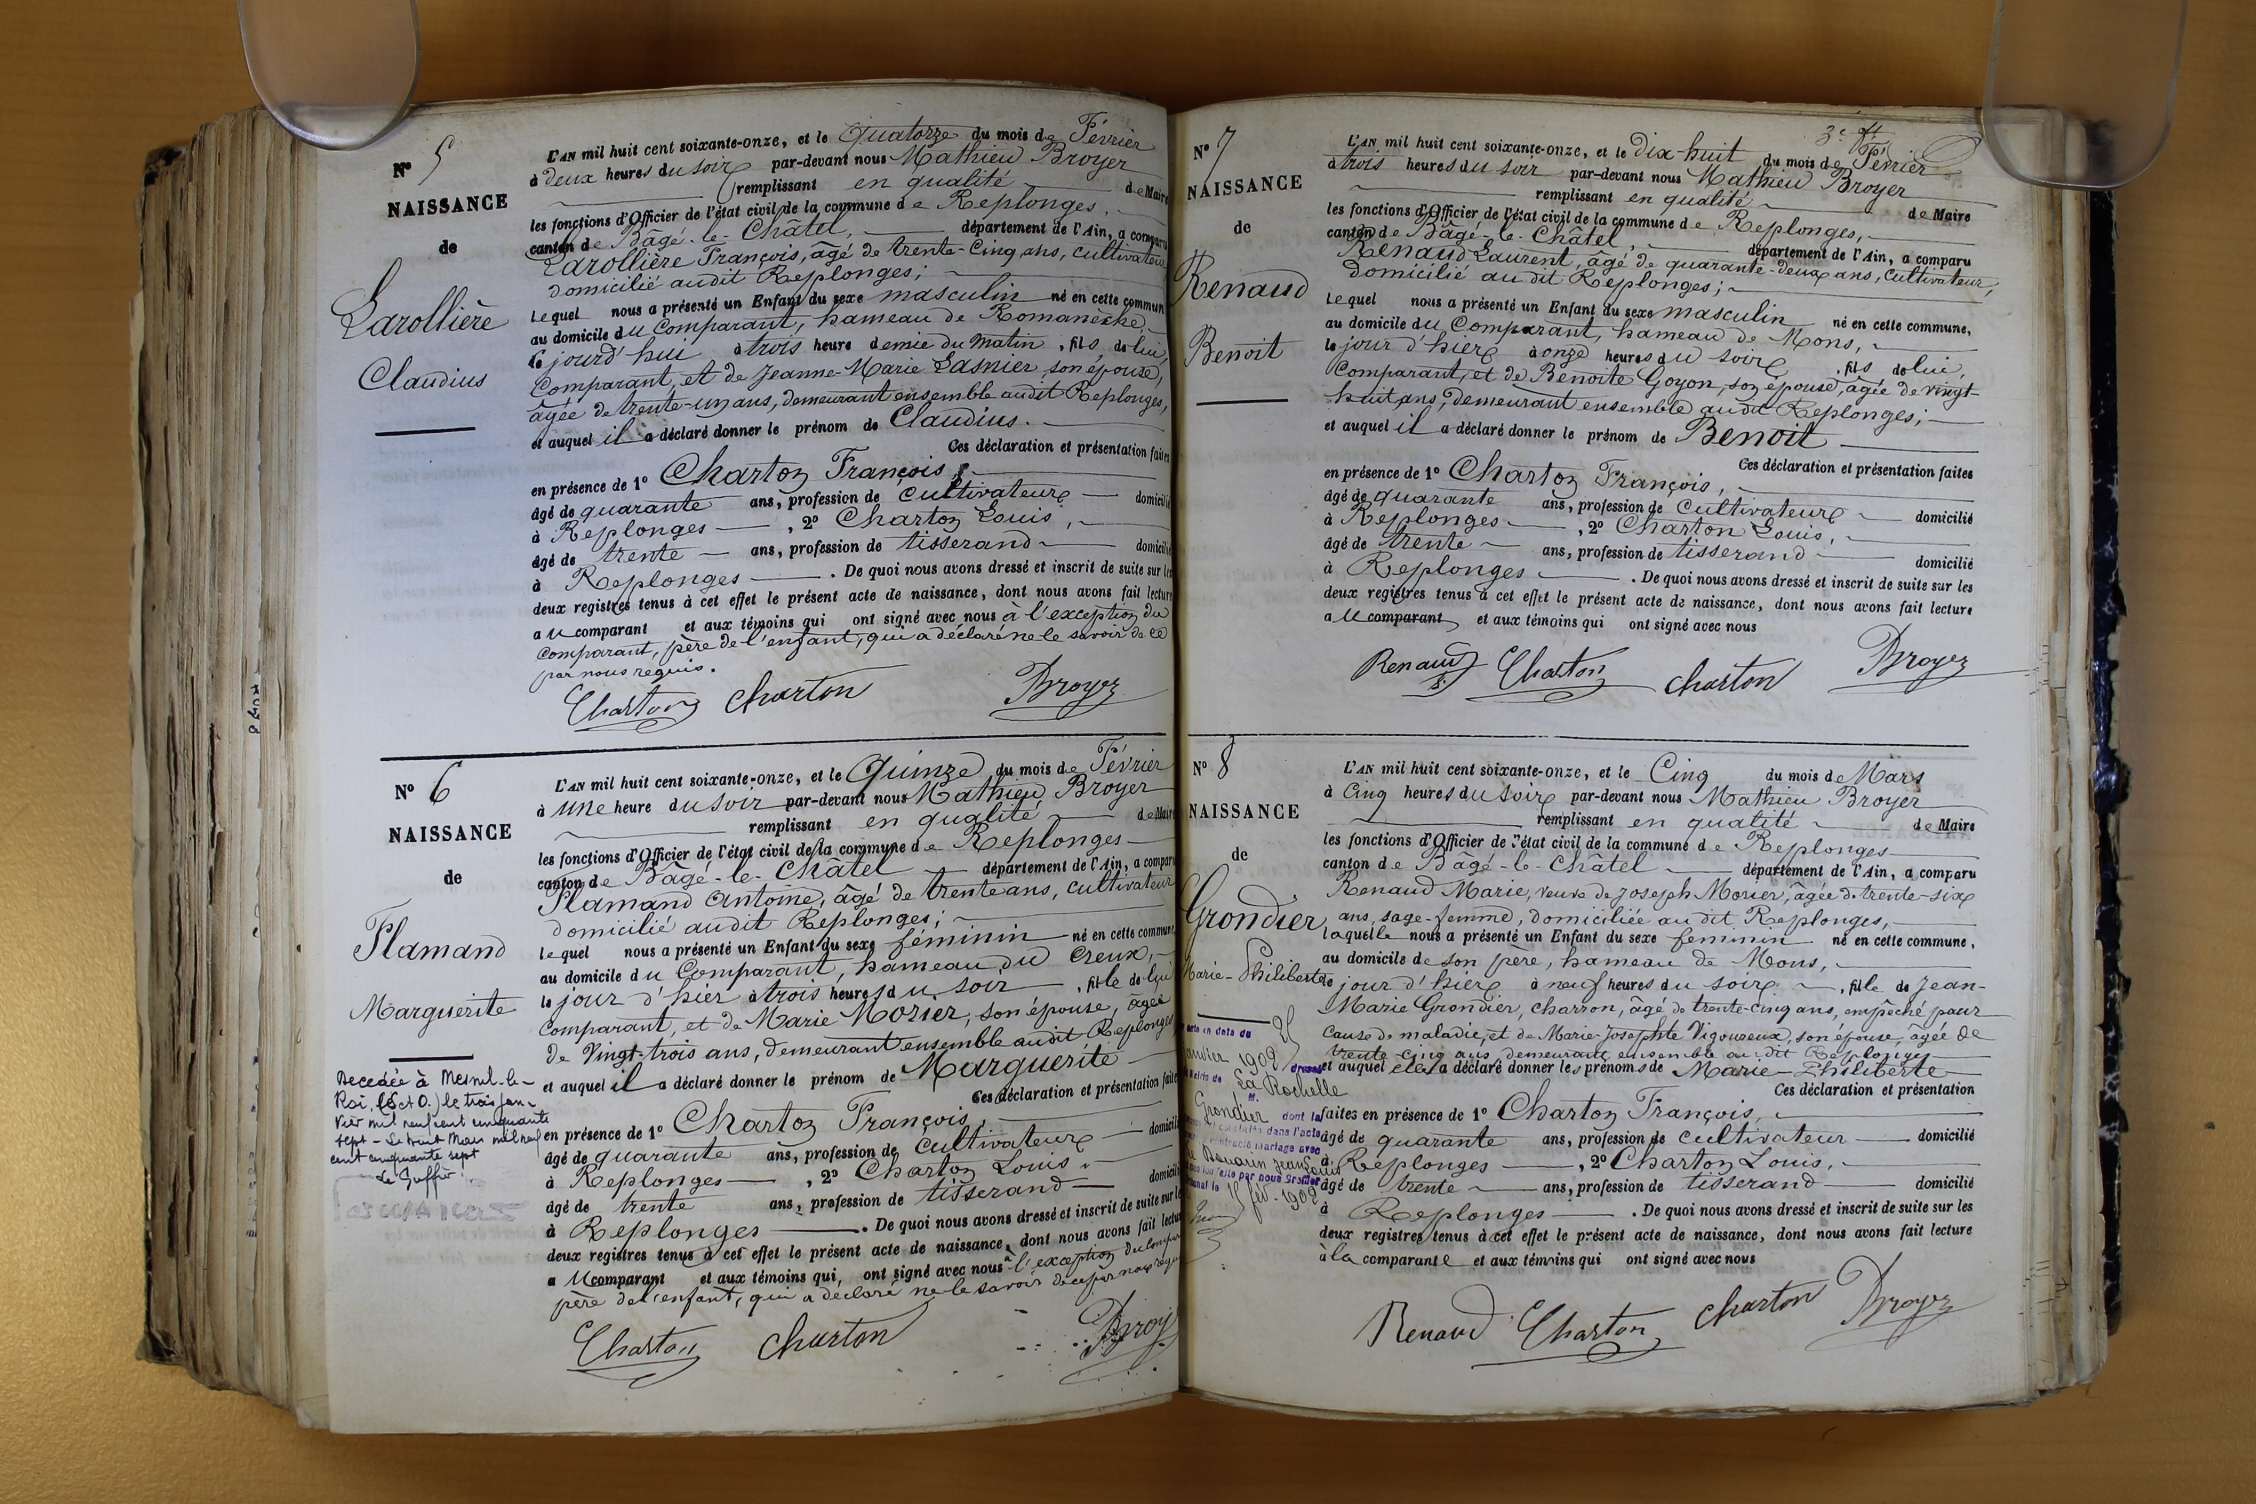 Nº 5
NAISSANCE
de
Larollière
Claudius
L'AN mil huit cent soixante-onze, et le Quatorze du mois de Février
à deux heures du soir par-devant nous Mathieu Broyer
remplissant en qualité de Maire
les fonctions d'Officier de l'état civil de la commune de Replonges,
canton de Bâgé-le-Châtel, département de l'Ain, a comparu
Larollière François, âgé de trente-cinq ans, cultivateur
domicilié audit Replonges;
Lequel nous a présenté un Enfant du sexe masculin né en cette commun
au domicile du Comparant, hameau de Romanèche,
jourd'hui à trois heure demie du matin, fils de lui
Comparant, et de Jeanne-Marie Lasnier son épouse,
âgée de trente-un ans, demeurant ensemble audit Replonges,
et auquel il a déclaré donner le prénom de Claudius.
Ces déclaration et présentation faites
en présence de 1º Charton François,
âgé de quarante ans, profession de cultivateur domicilié
à Replonges, 2º Charton Louis,
âgé de trente ans, profession de tisserand domicilié
à Replonges. De quoi nous avons dressé et inscrit de suite sur les
deux registres tenus à cet effet le présent acte de naissance, dont nous avons fait lecture
au comparant et aux témoins qui ont signé avec nous à l'exception du
comparant, père de l'enfant, qui a déclaré ne le savoir de ce
par nous requis.
Charton Charton Broyer
Nº 6
NAISSANCE
de
Flamand
Marguerite
Decedée à Mesnil-le-
Roi, (S et O.) le trois jan-
vier mil neuf cent cinquante
sept - Le huit Mars mil neuf
cent cinquante sept
Le Greffier
L'AN mil huit cent soixante-onze, et le Quinze du mois de Février
à une heure du soir par-devant nous Mathieu Broyer
remplissant en qualité de Maire
les fonctions d'Officier de l'état civil de la commune de Replonges
canton de Bâgé-le-Châtel département de l'Ain, a comparu
Flamand Antoine, âgé de trente ans, cultivateur
domicilié audit Replonges;
lequel nous a présenté un Enfant du sexe féminin né en cette commune,
au domicile du Comparant, hameau du Creux,
le jour d'hier à trois heures du soir, fille de lui
comparant, et de Marie Morier, son épouse, âgée
de Vingt-trois ans, demeurant ensemble audit Replonges
et auquel il a déclaré donner le prénom de Marguerite
Ces déclaration et présentation faites
en présence de 1º Charton François,
âgé de quarante ans, profession de cultivateur domicilié
à Replonges, 2º Charton Louis,
âgé de trente ans, profession de tisserand domicilié
à Replonges. De quoi nous avons dressé et inscrit de suite sur le
deux registres tenus à cet effet le présent acte de naissance, dont nous avons fait lecture
au comparant et aux témoins qui, ont signé avec nous à l'exception du
père de l'enfant, qui a déclaré ne le savoir de ce par nous
Charton Charton Broy
Nº 7
NAISSANCE
de
Renaud
Benoit
L'AN mil huit cent soixante-onze, et le dix-huit du mois de Février
à trois heures du soir par-devant nous Mathieu Broyer
remplissant en qualité de Maire
les fonctions d'Officier de l'état civil de la commune de Replonges,
canton de Bâgé-le-Châtel, département de l'Ain, a comparu
Renaud Laurent, âgé de quarante-deux ans, cultivateur,
domicilié audit Replonges;
Lequel nous a présenté un Enfant du sexe masculin né en cette commune,
au domicile du Comparant, hameau de Mons,
le jour d'hier à onze heures du soir, fils de lui,
Comparant, et de Benoite Goyon, son épouse, âgée de vingt-
huit ans, demeurant ensemble audit Replonges;
et auquel il a déclaré donner le prénom de Benoit
Ces déclaration et présentation faites
en présence de 1º Charton François,
âgé de quarante ans, profession de cultivateur domicilié
à Replonges, 2º Charton Louis,
âgé de trente ans, profession de tisserand domicilié
à Replonges. De quoi nous avons dressé et inscrit de suite sur les
deux registres tenus à cet effet le présent acte de naissance, dont nous avons fait lecture
au comparant et aux témoins qui ont signé avec nous
Renaud Charton Charton Broyer
Nº 8
NAISSANCE
de
Grondier
Marie-Philiberte
janvier 1909
La Rochelle
Grondier dont la
dans l'acte
contracté mariage avec
Jean Louis
par nous Greffier
15 fév. 1909
L'AN mil huit cent soixante-onze, et le Cinq du mois de Mars
à Cinq heures du soir par-devant nous Mathieu Broyer
remplissant en qualité de Maire
les fonctions d'Officier de l'état civil de la commune de Replonges
canton de Bâgé-le-Châtel département de l'Ain, a comparu
Renaud Marie, veuve de Joseph Morier, âgée de trente-six
ans, sage-femme, domiciliée audit Replonges,
laquelle nous a présenté un Enfant du sexe féminin né en cette commune,
au domicile de son père, hameau de Mons,
le jour d'hier à neuf heures du soir, fille de Jean-
Marie Grondier, charron, âgé de trente-cinq ans, empêché pour
cause de maladie, et de Marie-Josephte Vigoureux, son épouse, âgée de
trente-cinq ans demeurant ensemble audit Replonges
et auquel elle a déclaré donner les prénoms de Marie-Philiberte
Ces déclaration et présentation
faites en présence de 1º Charton François,
âgé de quarante ans, profession de cultivateur domicilié
à Replonges, 2º Charton Louis,
âgé de trente ans, profession de tisserand domicilié
à Replonges. De quoi nous avons dressé et inscrit de suite sur les
deux registres tenus à cet effet le présent acte de naissance, dont nous avons fait lecture
à la comparante et aux témoins qui ont signé avec nous
Renaud Charton Charton Broyer